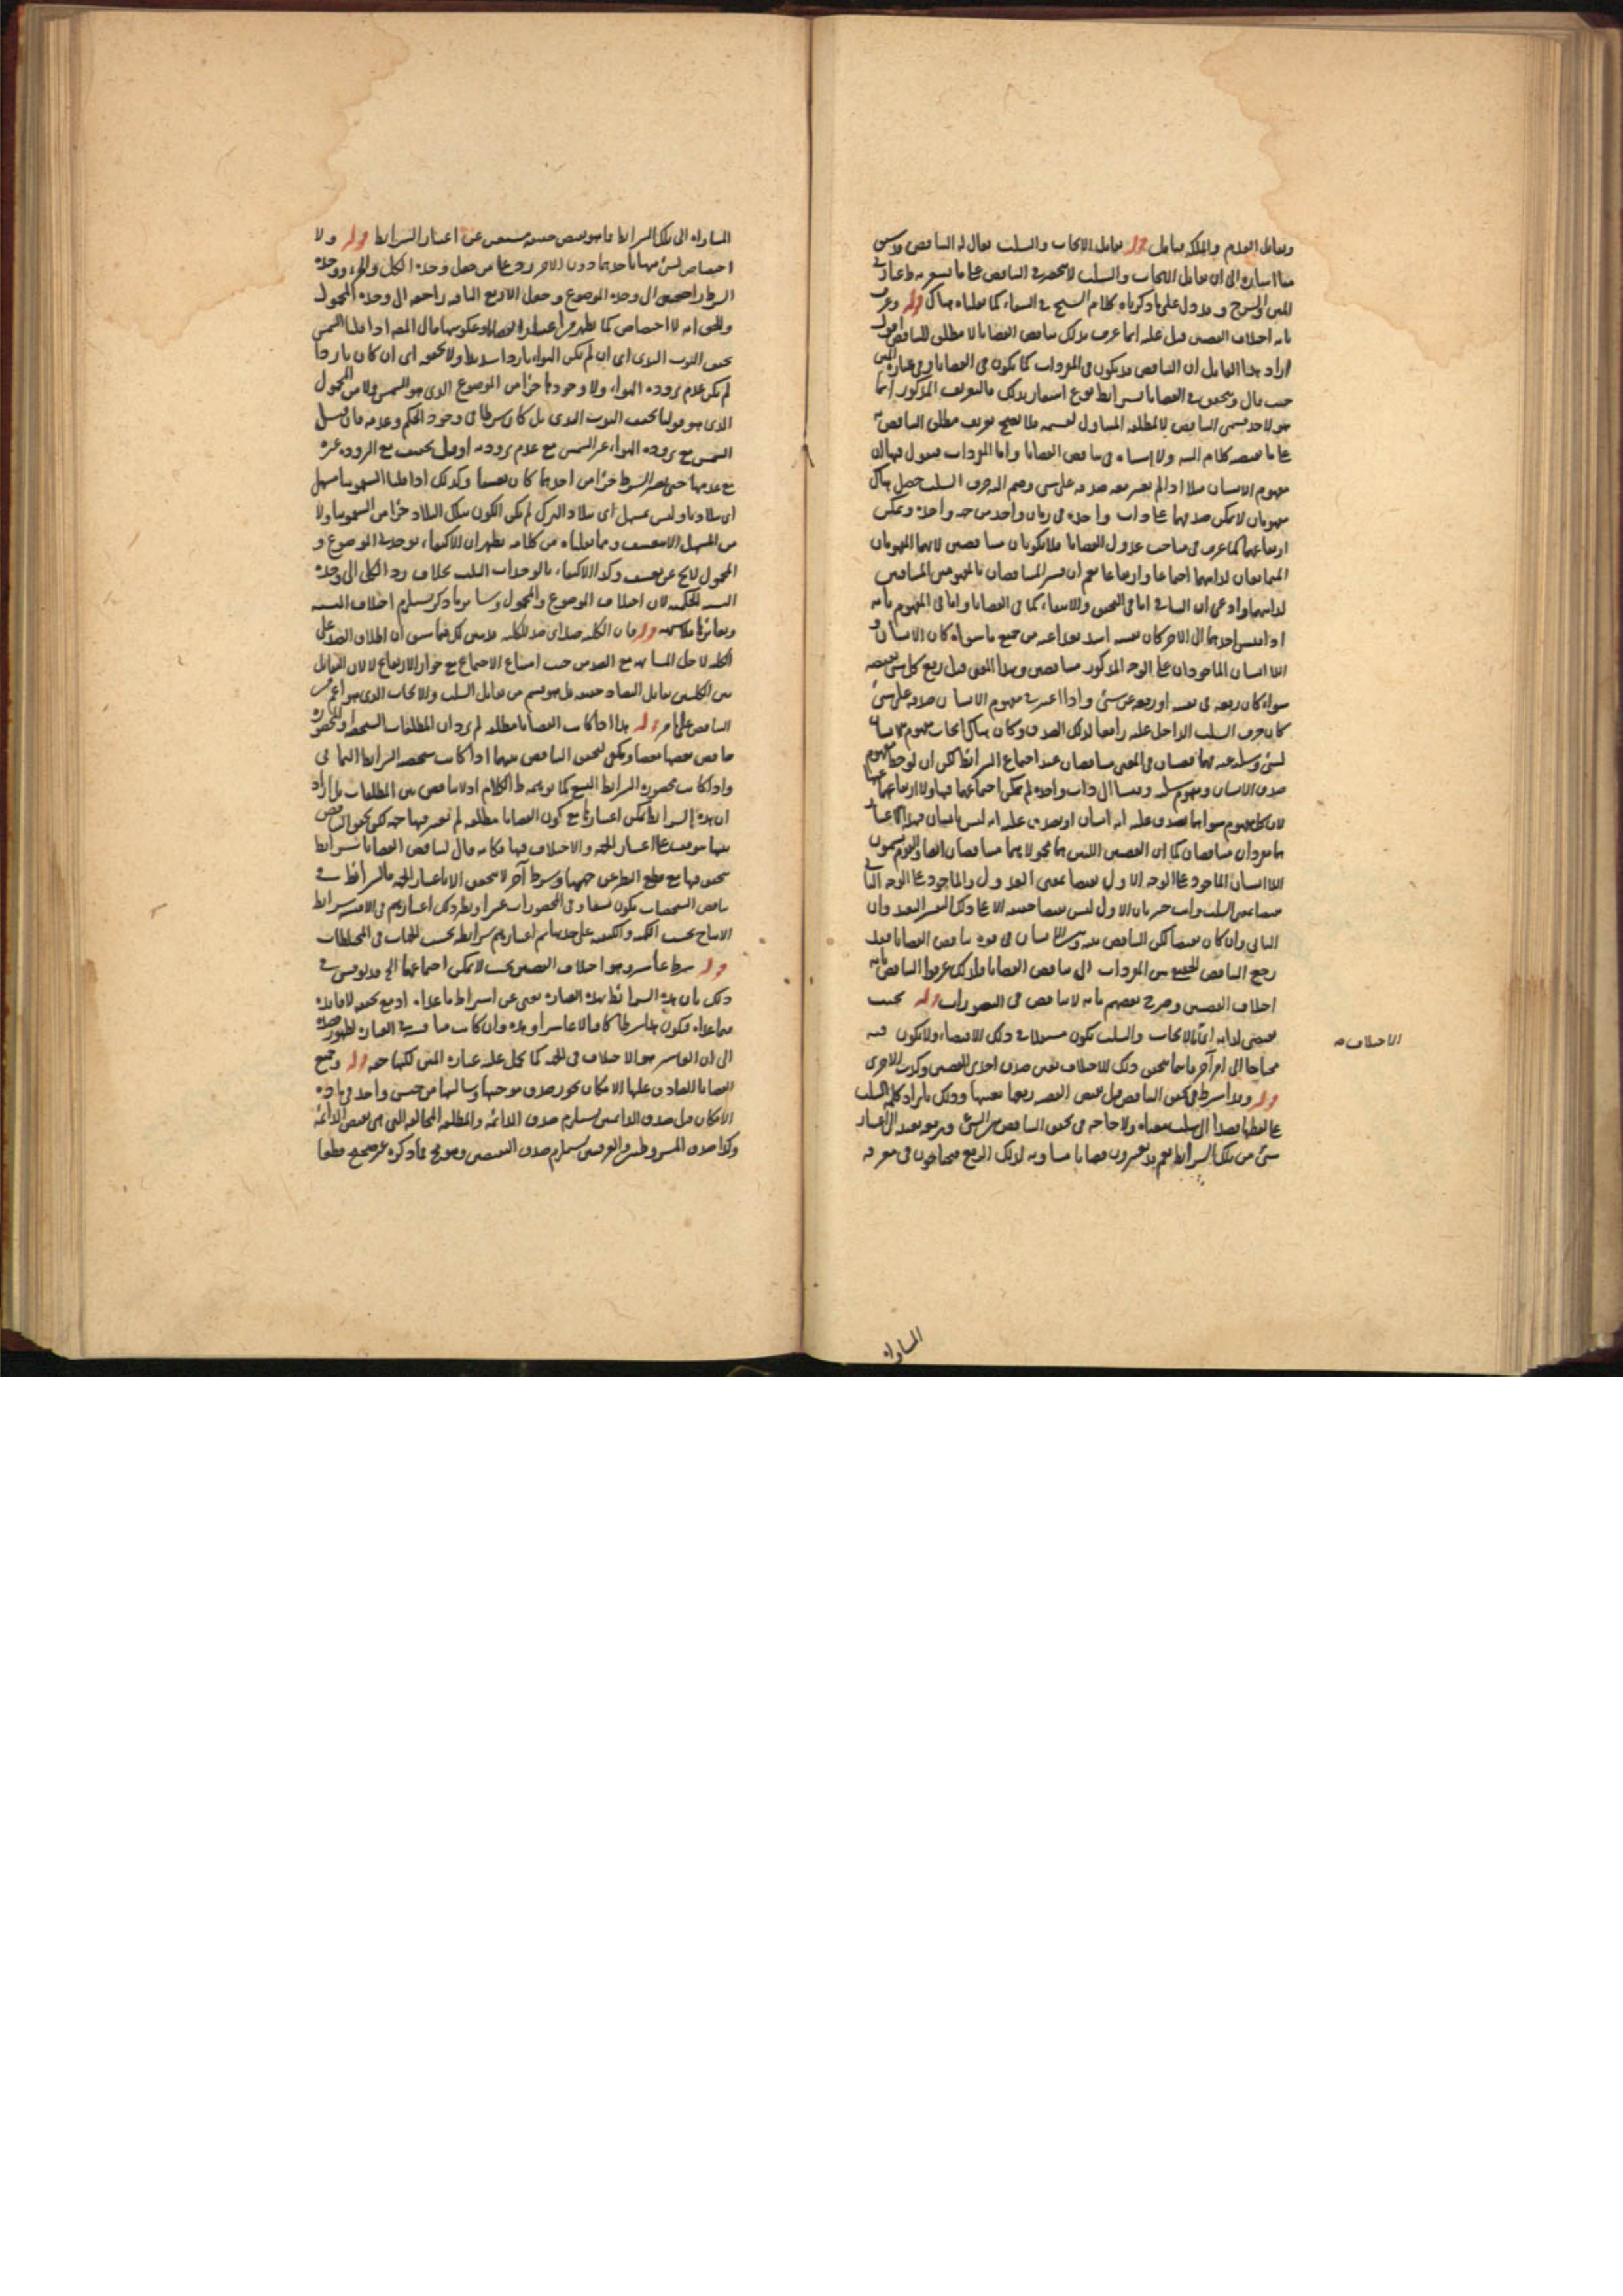 وتقابل العدم والملكة فتأمل قوله تقابل الايجاب والسلب يقال له التناقض
هنا اشارة الى ان تقابل الايجاب والسلب لا ينحصر في التناقض على ما
كلام الشيخ في الشفاء كما نقلناه هناك قوله وعرف
بانه اختلاف القضيتين قيل عليه انما عرف بذلك تناقض القضايا لا مطلق التناقض اقول
اراد هذا القايل ان التناقض قد يكون في المفردات كما يكون في القضايا وفي عبارة المتن
حيث قال ويتحقق في القضايا بشرايط نوع اشعار بذلك فالتعريف المذكور انما
هو لاحد قسمي التناقض لا لمطلقه المتناول لقسميه فلا يصح تعريف مطلق التناقض
ولا اشتباه في تناقض القضايا واما المفردات فنقول فيها ان
مفهوم الانسان مثلا اذا لم يعتبر معه صدقه على شيء وضم اليه حرف السلب حصل هناك
مفهومان لا يمكن صدقهما على ذات واحدة في زمان واحد من جهة واحدة ويمكن
ارتفاعهما كما عرف في مباحث عدول القضايا فلا يكونان متناقضين لانهما المفهومان
المتمانعان لذاتيهما اجتماعا وارتفاعا نعم ان فسر المتناقضان بالمفهومين المتنافيين
لذاتيهما وادعى ان التنافي اما في التحقق والانتفاء كما في القضايا واما في المفهوم بانه
اذا قيس احدهما الى الاخر كان نفسه اشد بعدا عنه من جميع ما سواه كان الانسان و
اللاانسان الماخوذان على الوجه المذكور متناقضين وبهذا المعنى قيل رفع كل شيء نقيضه
سواء كان رفعه في نفسه او رفعه عن شيء واذا اعتبر في مفهوم الانسان صدقه على شيء
كان حرف السلب الداخل عليه رافعا لذلك الصدق وكان هناك ايجاب مفهوم
لشيء وسلبه عنه فهما قضيتان في المعنى متناقضان عند اجتماع الشرايط لكن ان لوحظ مفهوم
صدق الانسان ومفهوم سلبه وقيسا الى ذات واحدة لم يمكن اجتماعهما فيها ولا ارتفاعهما عنها
لان كل مفهوم سواهما يصدق عليه انه انسان او يصدق عليه انه ليس بانسان فبهذا الاعتبار
هما مفردان متناقضان كما ان القضيتين اللتين هما محمولاهما متناقضان ايضا والقوم يسمون
اللاانسان الماخوذ على الوجه الاول نقيضا بمعنى العدول والماخوذ على الوجه الثاني
نقيضا بمعنى السلب وانت خبير بان الاول ليس نقيضا حقيقة الا على ذلك التفسير البعيد وان
الثاني وان كان نقيضا لكن التناقض بينه وبين الانسان في قوة تناقض القضايا فقد
رجع التناقض الحقيقي بين المفردات الى تناقض القضايا ولذلك عرفوا التناقض بانه
اختلاف القضيتين وصرح بعضهم بانه لا تناقض في التصورات قوله بحيث
يقتضي لذاته اي الايجاب والسلب يكون مستقلا في ذلك الاقتضاء ولا يكون فيه
محتاجا الى امر آخر فاينما تحقق ذلك الاختلاف تعين صدق احدى القضيتين وكذب الاخرى
قوله وقد اشترط في تحقق التناقض قيل نقيض القضية رفعها بعينها وذلك بايراد كلمة السلب
على لفظها قصدا الى سلب معناه ولا حاجة في تحقق التناقض بين الشيء ورفعه بعد الى اعتبار
شيء من تلك الشرايط نعم قد يعتبرون قضايا مساوية لذلك الرفع فيحتاجون في معرفة
الاختلاف صح
المساواة
المساواة الى تلك الشرايط فما هو نقيض حقيقة مستغن عن اعتبار الشرايط قوله ولا
اختصاص لشيء منها باحدهما دون الاخر رد على من جعل وحدة الكل والجزء ووحدة
الشرط راجعتين الى وحدة الموضوع وجعل الاربع الباقية راجعة الى وحدة المحمول
والحق انه لا اختصاص كما يظهر من اعتبار القضايا وعكوسها قال المص اذا قلنا الشمس
تجفف الثوب الندي اي ان لم يكن الهواء باردا شديدا ولا تجففه اي ان كان باردا
لم يكن عدم برودة الهواء ولا وجودها جزأ من الموضوع الذي هو الشمس ولا من المحمول
الذي هو قولنا تجفف الثوب الندي بل كان شرطا في وجود الحكم وعدمه فان قيل
الشمس مع برودة الهواء غير الشمس مع عدم برودته او قيل تجفيف مع البرودة غيره
مع عدمها حتى يصير الشرط جزأ من احدهما كان تعسفا وكذلك اذا قلنا السقمونيا مسهل
اي ببلادنا وليس بمسهل اي ببلاد الترك لم يكن الكون بتلك البلاد جزأ من السقمونيا ولا
من المسهل الا بتعسف ومما نقلناه من كلامه يظهر ان الاكتفاء بوحدتي الموضوع و
المحمول لا يخ عن تعسف وكذا الاكتفاء بالوحدات الثلث بخلاف رد الكل الى وحدة
النسبة الحكمية لان اختلاف الموضوع والمحمول وسائر ما ذكر يستلزم اختلاف النسبة
قوله فان الكلية ضد اي ضد للكلية قد بين لك فيما سبق ان اطلاق الضد على
الكلية لاجل المشابهة مع الضدين حيث امتناع الاجتماع مع جواز الارتفاع لا لان التقابل
بين الكليتين تقابل التضاد حقيقة بل هو قسم من تقابل السلب والايجاب الذي هو اعم من
التناقض على ما مر قوله هذا اذا كانت القضايا مطلقة لم يرد ان المطلقات الشخصية والمحصورة
تناقض بعضها بعضا ويكفي لتحقق التناقض بينهما اذا كانت شخصية الشرايط الثماني
واذا كانت محصورة الشرايط التسع كما توهمه ظ الكلام اذ لا تناقض بين المطلقات بل اراد
ان هذه الشرايط يمكن اعتبارها مع كون القضايا مطلقة لم تعتبر فيها جهة لكن تحقق التناقض
بينها موقوف على اعتبار الجهة والاختلاف فيها فكانه قال لتناقض القضايا شرايط
تتحقق فيها مع قطع النظر عن جهتها وشرط آخر لا يتحقق الا باعتبار الجهة فالشرائط في
تناقض الشخصيات يكون تسعا وفي المحصورات عشرا ونظير ذلك اعتبارهم في الاقيسة شرايط
الانتاج بحسب الكمية والكيفية على حدتها ثم اعتبارهم شرايطه بحسب الجهات في المختلطات
قوله شرط عاشر وهو اختلاف القضيتين بحيث لا يمكن اجتماعهما الخ قد نوقش في
ذلك بان هذه الشرائط بهذه العبارة يغني عن اشتراط ما عداه اذ مع تحققه لا فائدة
فيما عداه فيكون هذا شرطا كافيا لا عاشرا وهذه وان كانت مناقشة في العبارة لظهور قصده
الى ان العاشر هو الاختلاف في الجهة كما يحمل عليه عبارة المتن لكنها حقة قوله وجميع
القضايا الصادق عليها الامكان تجوز صدق موجبها وسالبها من جنس واحد في مادة
الامكان قيل صدق الدائمتين يستلزم صدق الدائمة والمطلقة المخالفة التي هي نقيض الدائمة
وكذا صدق المشروطتين والعرفيتين يستلزم صدق النقيضين وهو مح فما ذكره غير صحيح قطعا